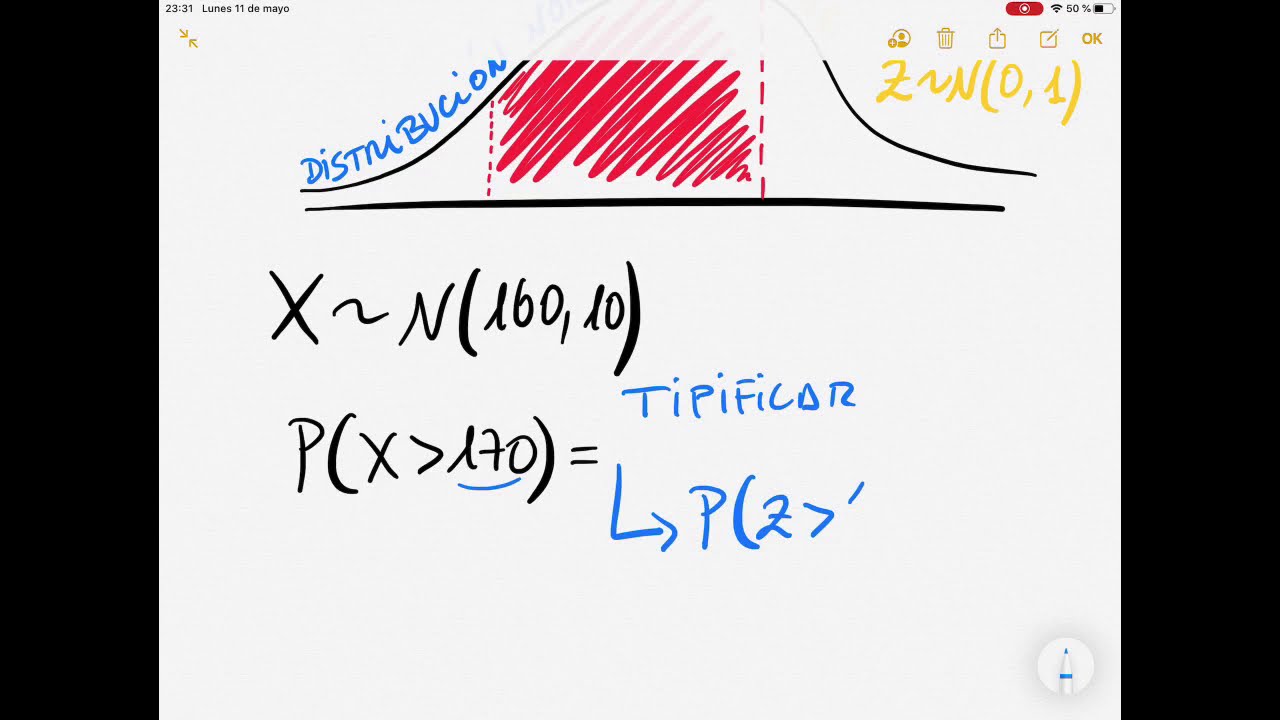 23:31 Lunes 11 de mayo
50 %
OK
DISTRIBUCIÓN
Z~N(0,1)
X~N(160,10)
TIPIFICAR
P(X>170)=
P(Z>